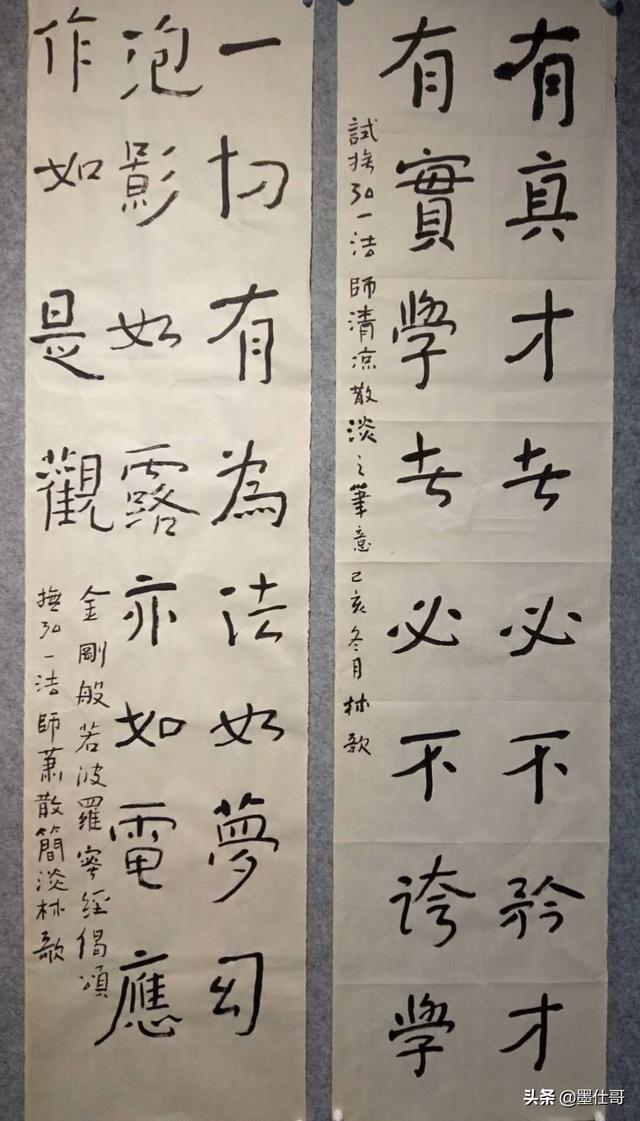 有真才者必不矜才
有實學者必不誇學
試撫弘一法師清凉散淡之筆意己亥冬月林歌
一切有為法如夢幻
泡影如露亦如電應
作如是觀
金剛般若波羅蜜經偈頌
撫弘一法師蕭散簡淡林歌
头条 @墨仕哥